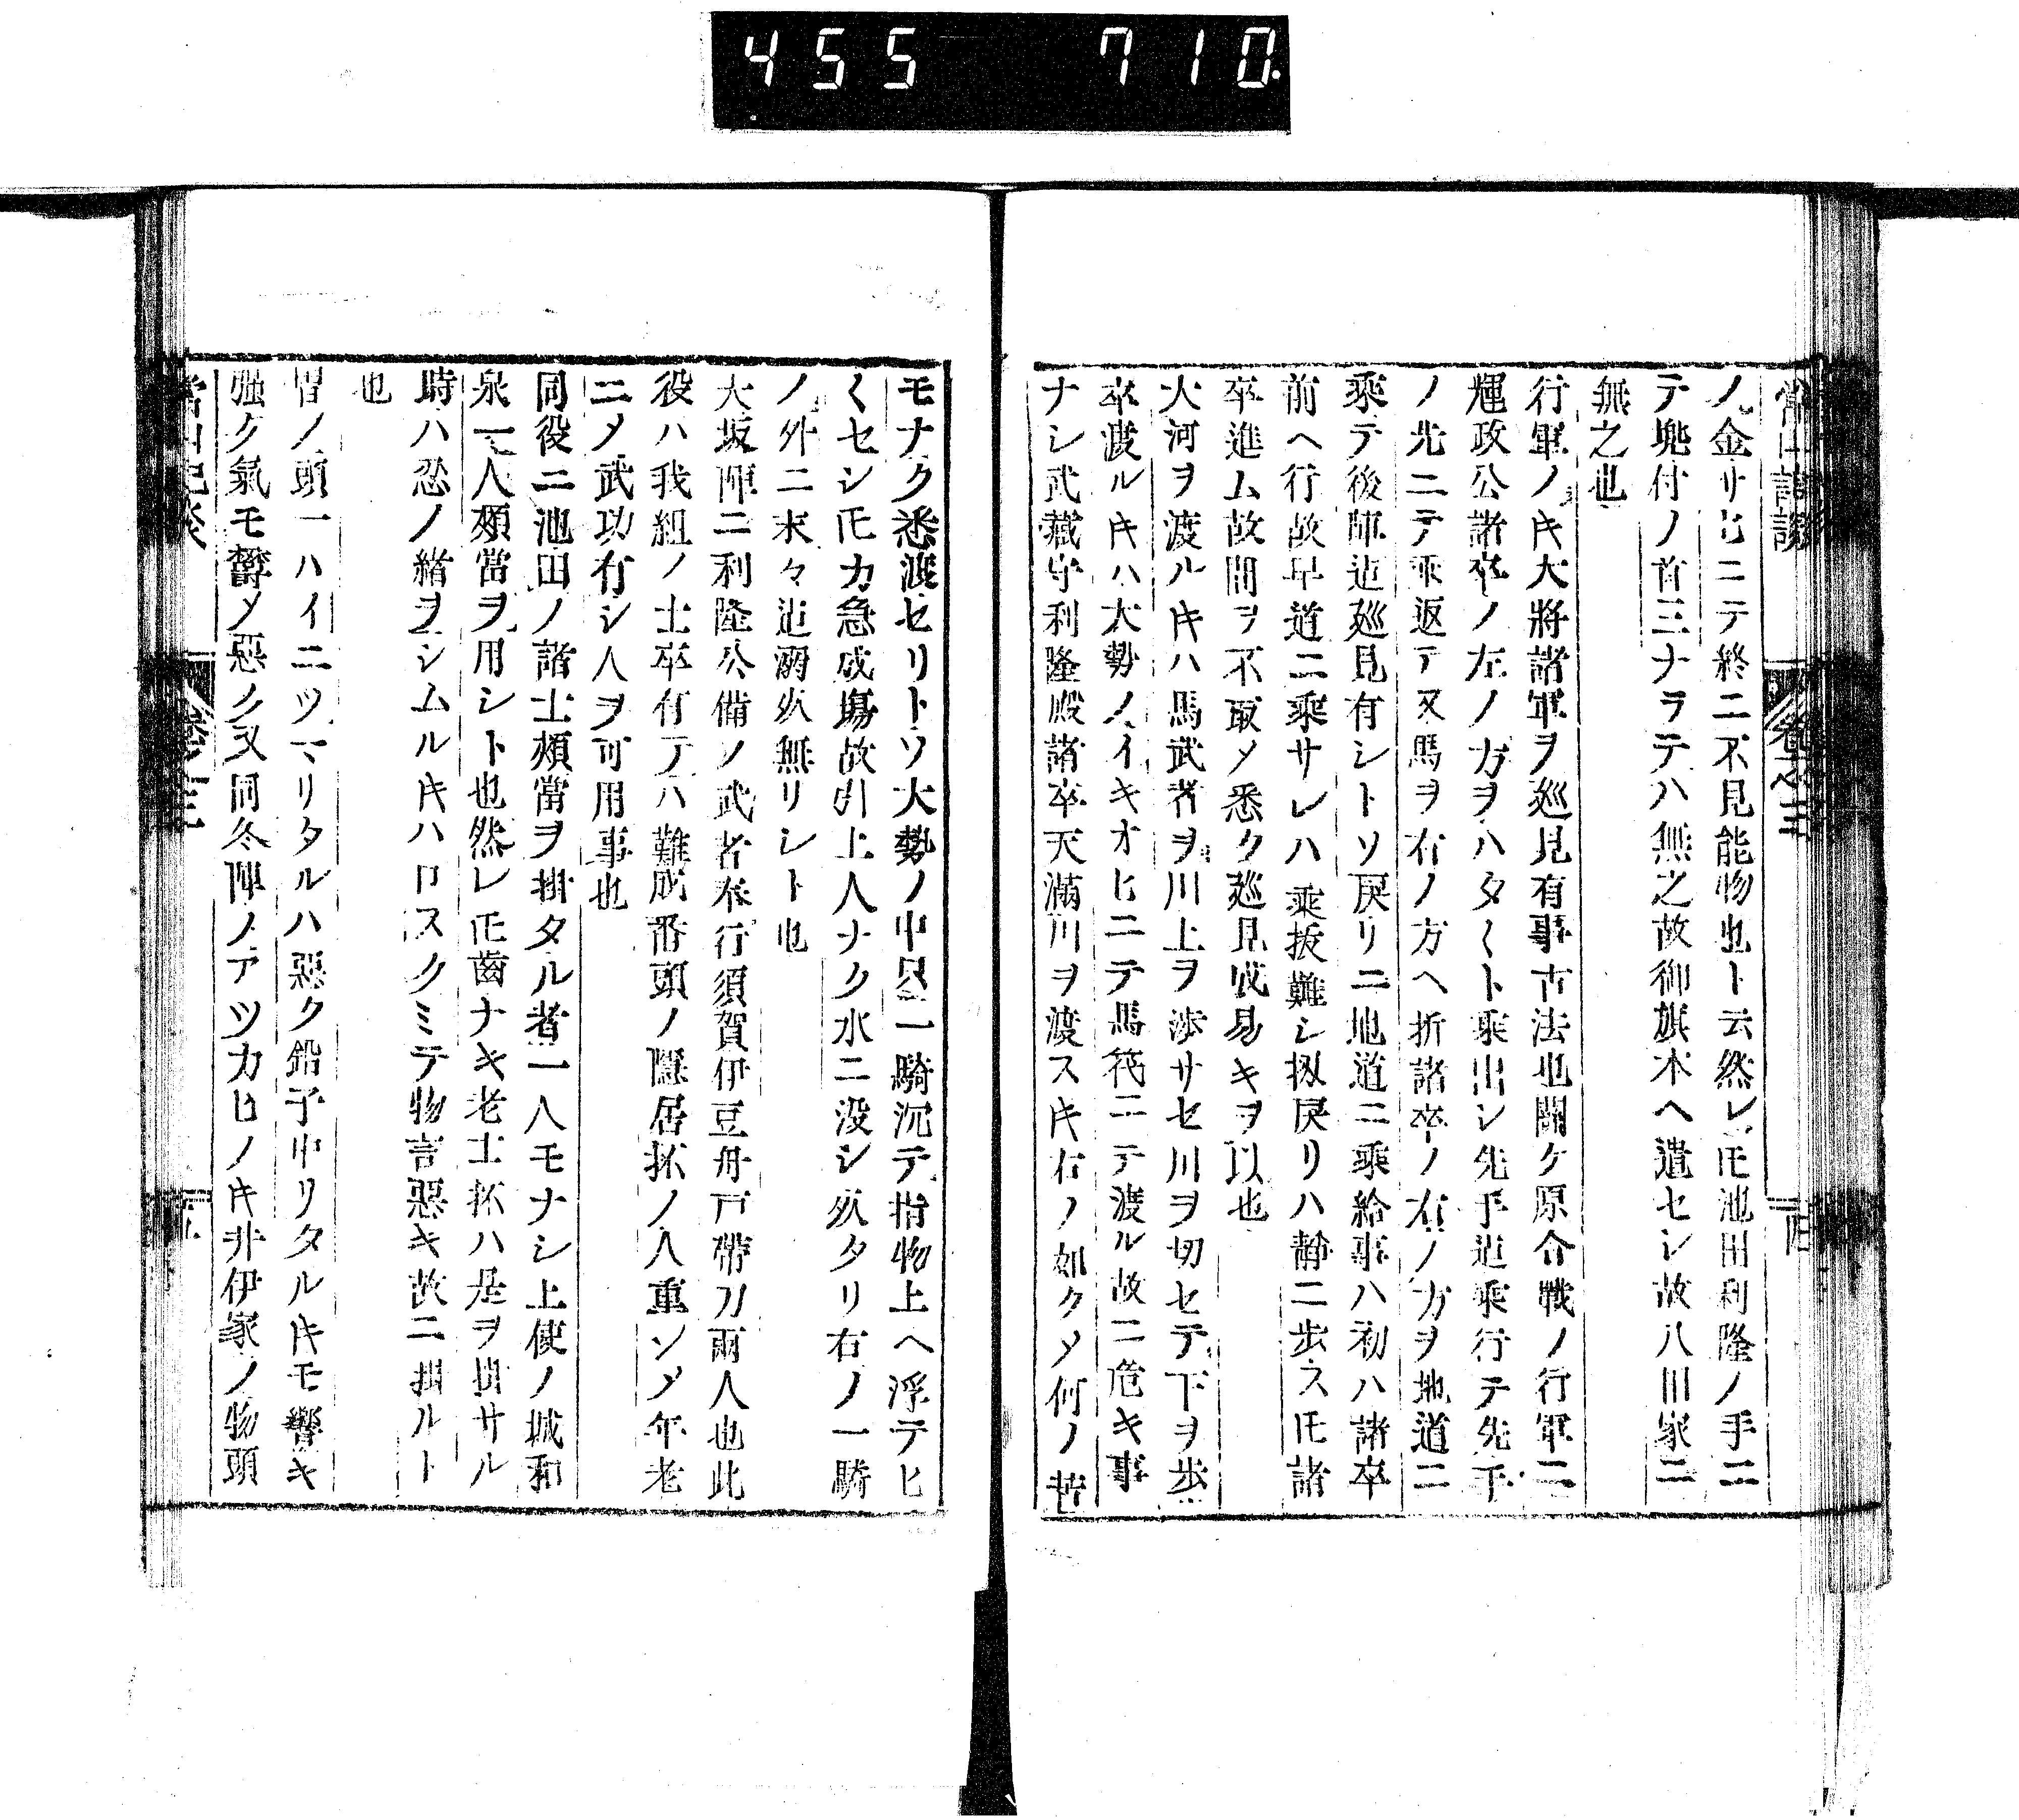 455 710.
ノ金サヒニテ終ニ不見能物也ト云然レ𪜈池田利隆ノ手ニ
テ兜付ノ首三ナラテハ無之故御旗本ヘ遣セシ故八田家ニ
無之也
行軍ノ𪜈大將諸軍ヲ廵見有事古法也關ケ原合戰ノ行軍ニ
輝政公諸卒ノ左ノ方ヲハタ〱ト乘出シ先手迠乘行テ先手
ノ先ニテ乘返テ又馬ヲ右ノ方ヘ折諸卒ノ右ノ方ヲ地道ニ
乘テ後陣迠廵見有シトソ戾リニ地道ニ乘給事ハ初ハ諸卒
前ヘ行故早道ニ乘サレハ乘拔難シ扨戾リハ靜ニ歩ス𪜈諸
卒進ム故間ヲ不取メ悉ク廵見成易キヲ以也
大河ヲ渡ル𪜈ハ馬武者ヲ川上ヲ渉サセ川ヲ切セテ下ヲ歩
卒渡ル𪜈ハ大勢ノイキオヒニテ馬筏ニテ渡ル故ニ危キ事
ナシ武藏守利隆殿諸卒天滿川ヲ渡ス𪜈右ノ如クメ何ノ苦
モナク悉渡セリトソ大勢ノ中只一騎沉テ指物上ヘ浮テヒ
〱セシ𪜈カ急成塲故引上人ナク水ニ没シ死タリ右ノ一騎
ノ外ニ末々迠溺死無リシト也
大坂陣ニ利隆公備ノ武者奉行須賀伊豆舟戸帶刀兩人也此
役ハ我組ノ士卒有テハ難成番頭ノ隱居抔ノ人重ンメ年老
ニメ武功有シ人ヲ可用事也
同役ニ池田ノ諸士頰當ヲ掛タル者一人モナシ上使ノ城和
泉一人頰當ヲ用シト也然レ𪜈齒ナキ老士抔ハ是ヲ掛サル
時ハ忍ノ緒ヲシムル𪜈ハ口スクミテ物言惡キ故ニ掛ルト
也
胄ノ頭一ハイニツマリタルハ惡ク鉛子中リタル𪜈モ響キ
强ク氣モ欝メ惡ク又同冬陣ノアツカヒノ𪜈井伊家ノ物頭